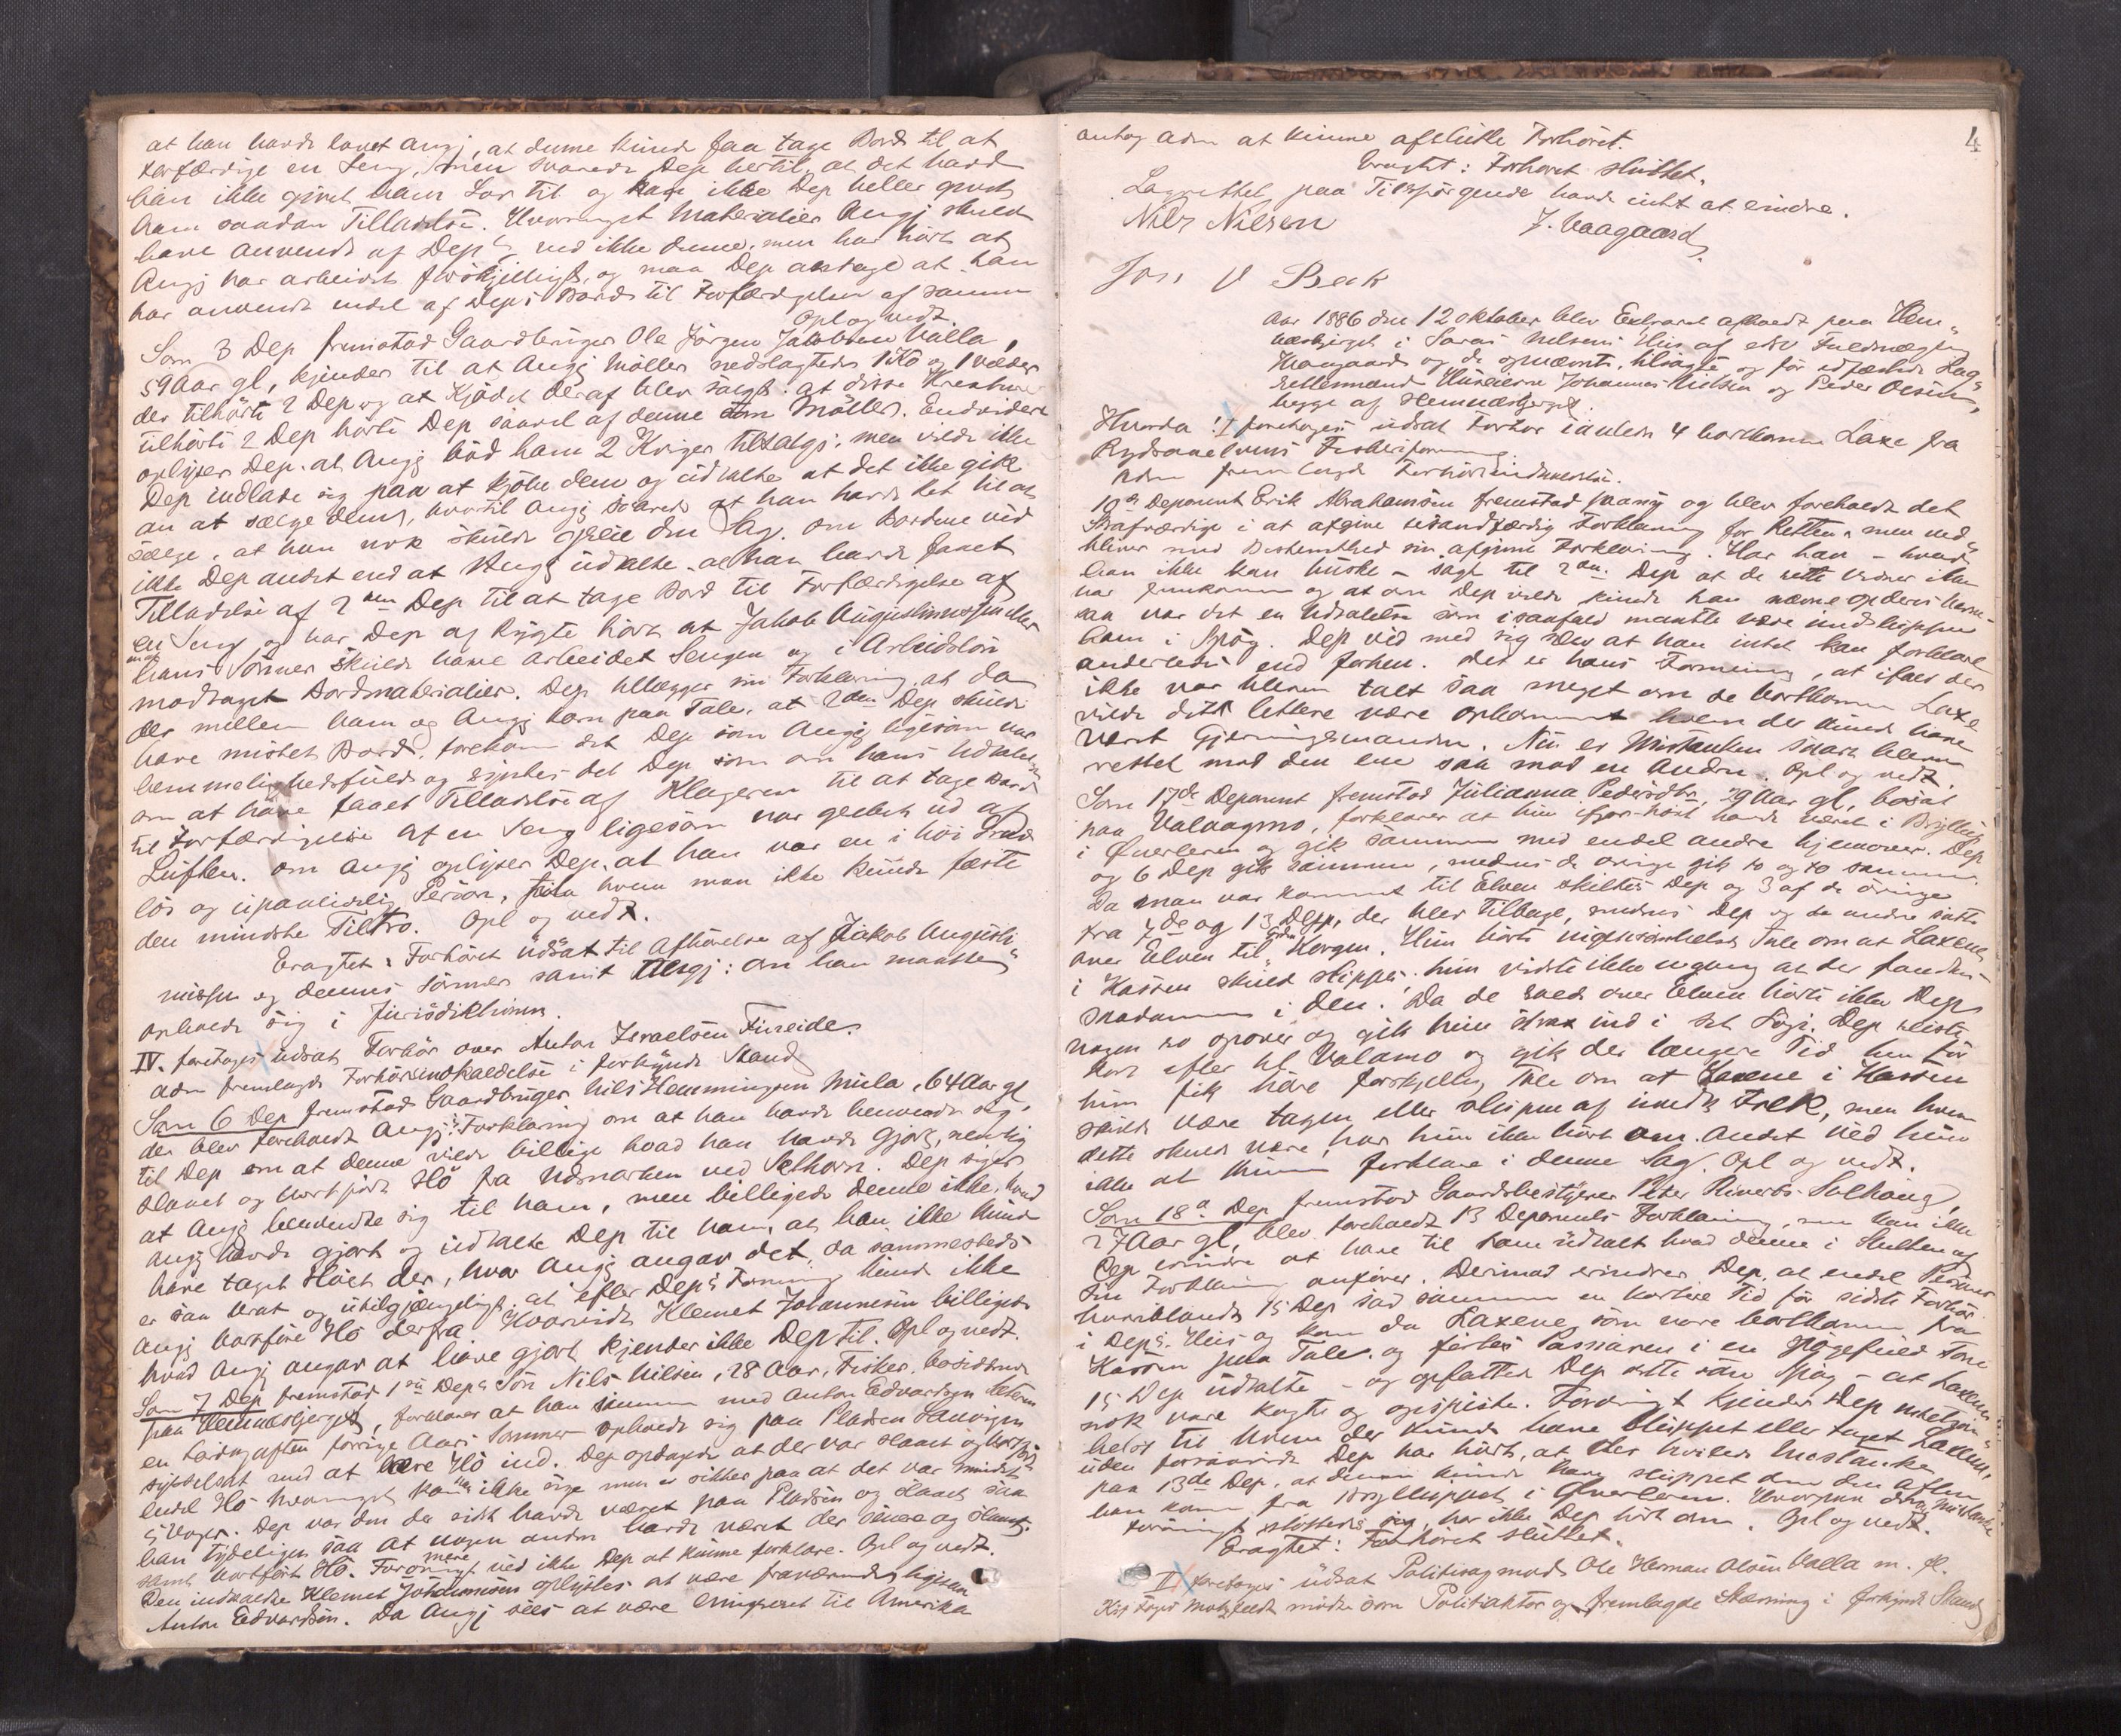 at han havde lovet Angj, at denne kunde faa tage Bord til at
forfærdige en Seng, men svarede Dep hertil, at det havde
han ikke givet ham Lov til og kan ikke Dep heller givet
ham saadan Tilladelse. Hvormeget Materialier Angj skulde
have anvendt af Deps ved ikke denne, men har hørt at
Angj har arbeidet forskjelligt, og maa Dep antage at han
har anvendt endel af Deps Bord til Forfærdigelsen af samme
Opl og vedt.
Som 3 Dep fremstod Gaardbruger Ole Jørgen Jakobsen Valla,
59 Aar gl, kjender til at Angj Møller nedslagtede 1 Ko og 1 Væder
der tilhørte 2 Dep og at Kjødet deraf blev solgt; at disse Kreature
tilhørte 2 Dep hørte Dep saavel af denne som Møller. Endvidere
oplyser Dep. at Angj bød ham 2 Kviger tilsalgs; men vilde ikke
Dep indlade sig paa at kjøbe dem og udtalte at det ikke gik
an at sælge dem, hvortil Angj svarede at han havde Ret til at
sælge, at han nok skulde greie den Sag. Om Bordene ved
ikke Dep andet end at Angj udtalte, at han havde faaet
Tilladelse af 2den Dep til at tage Bord til Forfærdigelse af
en Seng og har Dep af Rygte hørt at Jakob Augustinussen eller
hans Sønner skulde have arbeidet Sengen og i Arbeidsløn
modtaget Bordmaterialier. Dep tillægger sin Forklaring, at da
der mellem ham og Angj kom paa Tale, at 2den Dep skulde
have mistet Bord, forekom det Dep som Angj ligesom var
hemmelighedsfuld og syntes det Dep som om hans Udtalelse
om at have faaet Tilladelse af Klageren til at tage Bord
til Forfærdigelse af en Seng ligesom var grebet ud af
Luften. Om Angj oplyser Dep. at han var en i høi Grad
løs og upaalidelig Person, til hvem man ikke kunde fæste
den mindste Tiltro. Opl og vedt.
Eragtet: Forhøret udsat til Afhørelse af Jakob Augusti-
nussen og dennes Sønner samt Angj: om han maatte
opholde sig i Jurisdiktionen.
IV. foretoges udsat Forhør over Anton Israelsen Finneide.
Adm fremlagde Forhørsindkaldelse i forkyndt Stand
Som 6 Dep fremstod Gaardbruger Nils Hemmingsen Mula, 64 Aar gl,
der blev foreholdt Angj:s Forklaring om at han havde henvendt sig
til Dep om at denne vilde billige hvad han havde gjort, nemlig
slaaet og bortført Hø fra Udmarken ved Sæthorn. Dep siger
at Angj henvendte sig til ham, men billigede denne ikke, hvad
Angj havde gjort og udtalte Dep til ham, at han ikke kunde
have taget Høet der, hvor Angj angav det, da sammesteds
er saa brat og utilgjængeligt, at efter Deps Formening kunde ikke
Angj bortføre Hø derfra. Hvorvidt Klemet Johannesen billigede
hvad Angj angav at have gjort, kjender ikke Dep til. Opl og vedt.
Som 7 Dep fremstod 1ste Deps Søn Nils Nilsen, 28 Aar, Fisker, bosiddende
paa Hemnesbjerget, forklarer at han sammen med Anton Edvardsen
en Lørdagaften forrige Aars Sommer opholdt sig paa Pladsen
sysselsat med at bære Hø ind. Dep opdagede at der var slaaet og bortført
endel Hø hvormeget kan ikke sige men er sikker paa at det var mindst
5 Voger. Dep var den der sidst havde været paa Pladsen og slaaet saa
han tydeligen saa at nogen anden havde været der senere og slaaet
samt bortført Hø. Forøvrigt mere ved ikke Dep at kunne forklare. Opl og vedt.
Den indkaldte Klemet Johannesen oplystes at være fraværende ligesaa
Anton Edvardsen. Da Angj sees at være emigreret til Amerika
4
antog Adm at kunne afslutte Forhøret.
Eragtet: Forhøret sluttet.
Lagrettet paa Tilspørgende havde intet at erindre.
Nils Nilsen J. Vaagaard
Jon Beck
Aar 1886 den 12 Oktober blev Extraret afholdt paa Hem-
næsbjerget i Saras Nilsens Hus af edsv Fuldmægtig
Waagaard og de opnævnte, tilsagte og før edfæstede Lag-
rettesmænd Husmænd Johannes Nilsen og Peder Olsen,
begge af Hemnæsbjerget.
Hvorda: I foretoges udsat Forhør i anledn 4 bortkomne Laxe fra
Rydsaaelvens Fiskeriforening.
Adm fremlagde Forhørsindkaldelse.
10de Deponent Erik Abrahamsen fremstod paany og blev foreholdt det
Strafværdige i at afgive usandfærdig Forklaring for Retten, men ved-
bliver med Bestemthed sin afgivne Forklaring. Har han - hvad
han ikke kan huske - sagt til 2den Dep at de rette Vidner ikke
var fremkomne og at om Dep vilde kunde han nævne op deres Navne
saa var det en Udtalelse som isaafald maatte være undsluppen
ham i Spøg. Dep ved med sig selv at han intet kan forklare
anderledes end forhen. Det er hans Formening, at ifald der
ikke var bleven talt saa meget om de bortkomne Laxe
vilde det lettere være opkommet hvem der kunde have
været Gjerningsmanden. Nu er Mistanken snart bleven
rettet mod den ene saa mod en Anden. Opl og vedt.
Som 17de Deponent fremstod Julianna Pedersdtr, 29 Aar gl, bosat
paa Valaagmo, forklarer at hun ifjor høst havde været i Bryllup
i Querleren og gik sammen med endel andre hjemover. Dep
og 6 Dep gik sammen, medens de øvrige gik to og to sammen.
Da man var kommet til Elven skiltes Dep og 3 af de øvrige
fra 4de og 13 Dep, der blev tilbage, medens Dep og de andre satte
over Elven til Siden Korgen. Hun hørte ingensomhelst Tale om at Laxene
i Kassen skulde slippes; hun vidste ikke engang at der fandtes
saadanne i den. Da de roede over Elven hørte ikke Dep
nogen ro opover og gik hun strax ind i sit Logi. Dep reiste
kort efter til Valamo og gik der længere Tid hen før
hun fik høre forskjellig Tale om at Laxene i Kassen
skulde være tagen eller slupne af onde Folk, men hvem
dette skulde være, har hun ikke hørt om. Andet ved hun
ikke at kunne forklare i denne Sag. Opl og vedt.
Som 18de Dep fremstod Gaardsbestyrer Peter Solhaug,
27 Aar gl, blev foreholdt 13 Deponents Forklaring, men kan ikke
Dep erindre at have til ham udtalt hvad denne i Slutten af
sin Forklaring anfører. Derimod erindrer Dep, at endel Personer
hvoriblandt 15 Dep sad sammen en kortere Tid før sidste Forhør
i Deps Hus og kom da Laxene, som vare bortkomne fra
Kassen paa Tale, og førtes Passiaren i en spøgefuld Tone
15 Dep udtalte - og opfatter Dep dette som Spøg - at Laxene
nok vare kogte og opspiste. Forøvrigt kjender Dep intetsom-
helst til hvem der kunde have sluppet eller taget Laxene,
uden forsaavidt Dep har hørt, at der hvilede Mistanke
paa 13de Dep, at denne kunde have sluppet dem den Aften
han kom fra Brylluppet i Querleren. Hvorpaa denne Mistanke
forøvrigt støttede sig, har ikke Dep hørt om. Opl og vedt.
Eragtet: Forhøret sluttet.
II foretoges udsat Politisag mod Ole Herman Olsen Valla m. fl.
Kst Foged Motzfeldt mødte som Politiaktor og fremlagde Stævning i forkyndt Stand